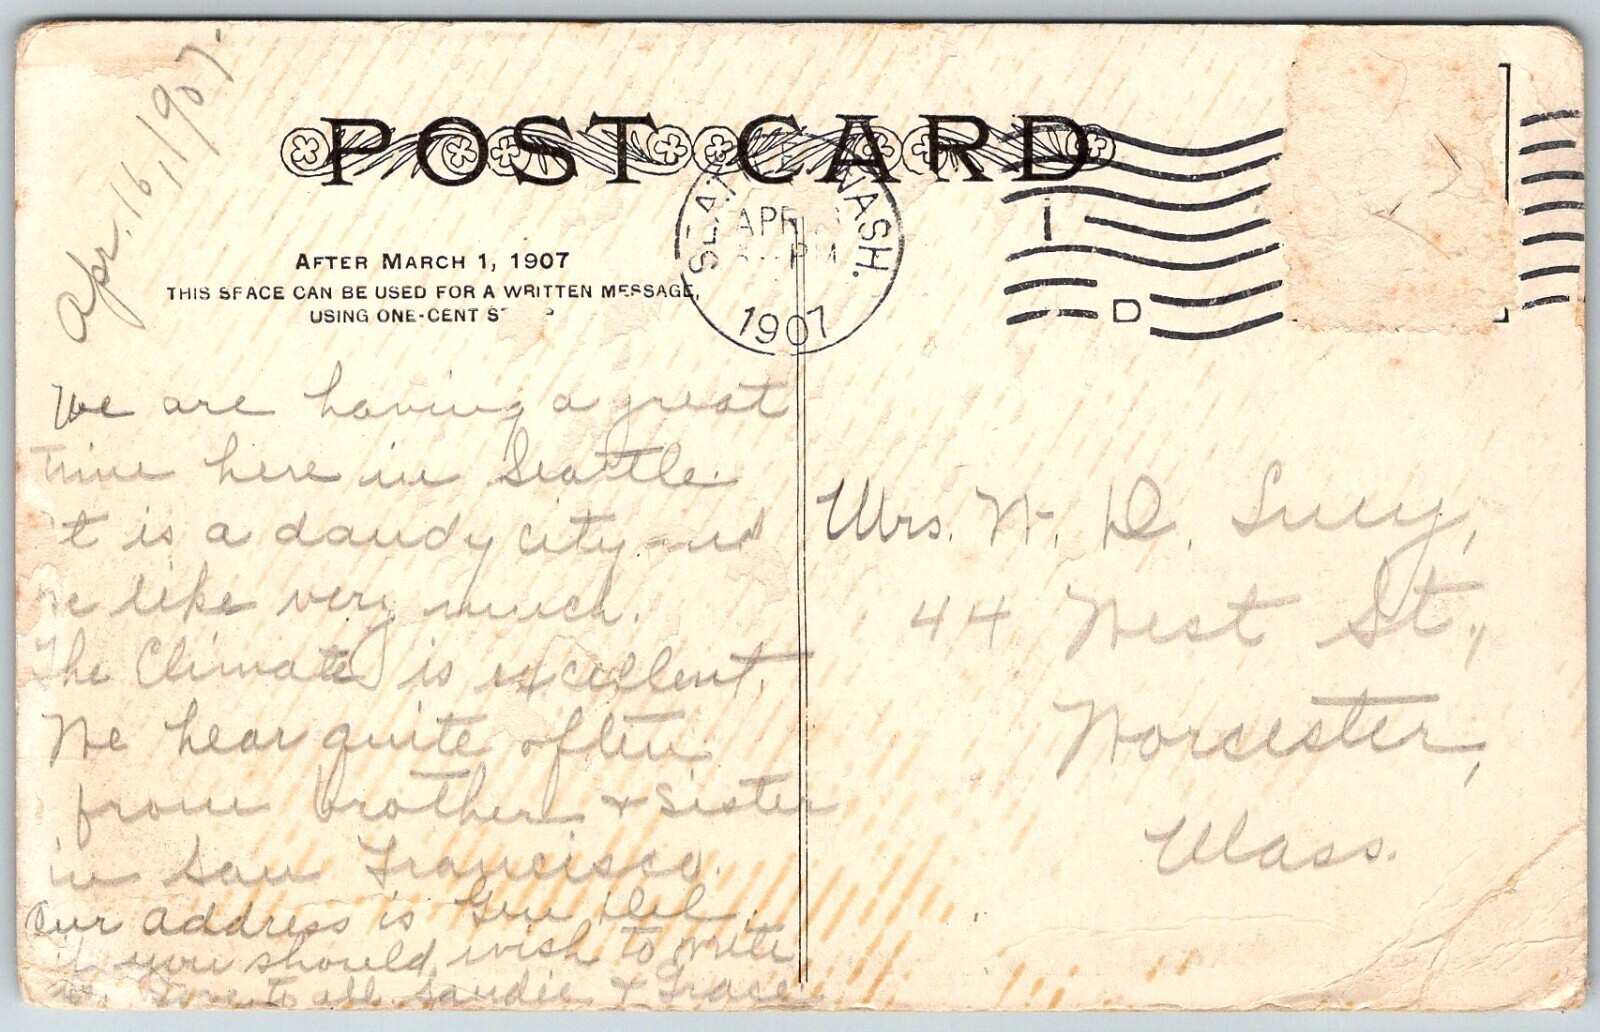 Apr. 16, 1907.
POST CARD
SEATTLE WASH.
APR
PM
1907
1
D
AFTER MARCH 1, 1907
THIS SPACE CAN BE USED FOR A WRITTEN MESSAGE,
USING ONE-CENT
We are having a great
time here in Seattle.
It is a dandy city and
we like very much.
The Climate is excellent.
We hear quite often
from brother & sister
in San Francisco.
Our address is Gen Del.
if you should wish to write
us. Love to all. Sandie & Grace
Mrs. W. D. Lucy,
44 West St.,
Worcester,
Mass.